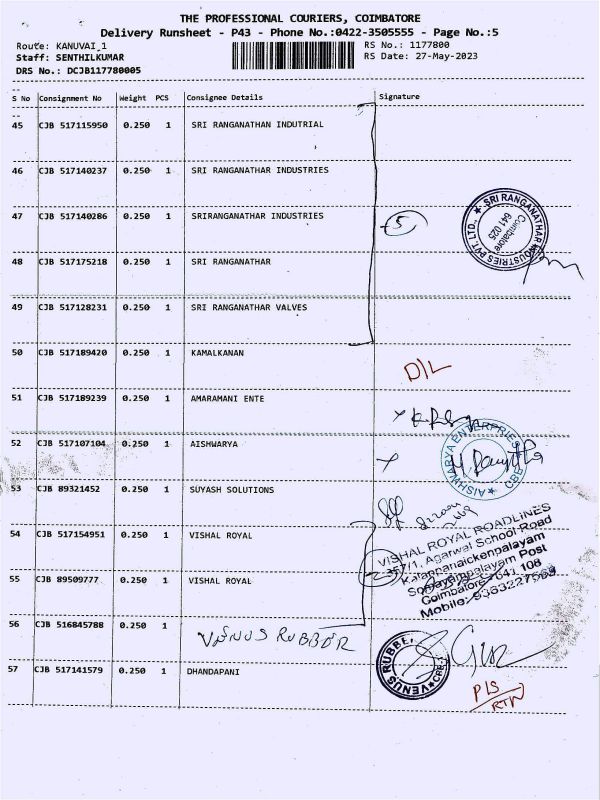 THE PROFESSIONAL COURIERS, COIMBATORE
Delivery Runsheet - P43 - Phone No.:0422-3505555 - Page No.:5
Route: KANUVAI_1 RS No.: 1177800
Staff: SENTHILKUMAR RS Date: 27-May-2023
DRS No.: DCJB117780005
S No Consignment No Weight PCS Consignee Details Signature
45 CJB 517115950 0.250 1 SRI RANGANATHAN INDUTRIAL
46 CJB 517140237 0.250 1 SRI RANGANATHAR INDUSTRIES
47 CJB 517140286 0.250 1 SRIRANGANATHAR INDUSTRIES 5
SRI RANGANATHAR INDUSTRIES PVT. LTD.,
Coimbatore
641 025
48 CJB 517175218 0.250 1 SRI RANGANATHAR
49 CJB 517128231 0.250 1 SRI RANGANATHAR VALVES
50 CJB 517189420 0.250 1 KAMALKANAN D/L
51 CJB 517189239 0.250 1 AMARAMANI ENTE
52 CJB 517107104 0.250 1 AISHWARYA
AISHWARYA ENTERPRISES CBE
53 CJB 89321452 0.250 1 SUYASH SOLUTIONS
54 CJB 517154951 0.250 1 VISHAL ROYAL
VISHAL ROYAL ROADLINES
357/1, Agarwal School Road
Kalappanaickenpalayam
Somayampalayam Post
Coimbatore - 641 108
Mobile:
55 CJB 89509777 0.250 1 VISHAL ROYAL 2
56 CJB 516845788 VENUS RUBBER
VENUS RUBBE
57 CJB 517141579 0.250 1 DHANDAPANI